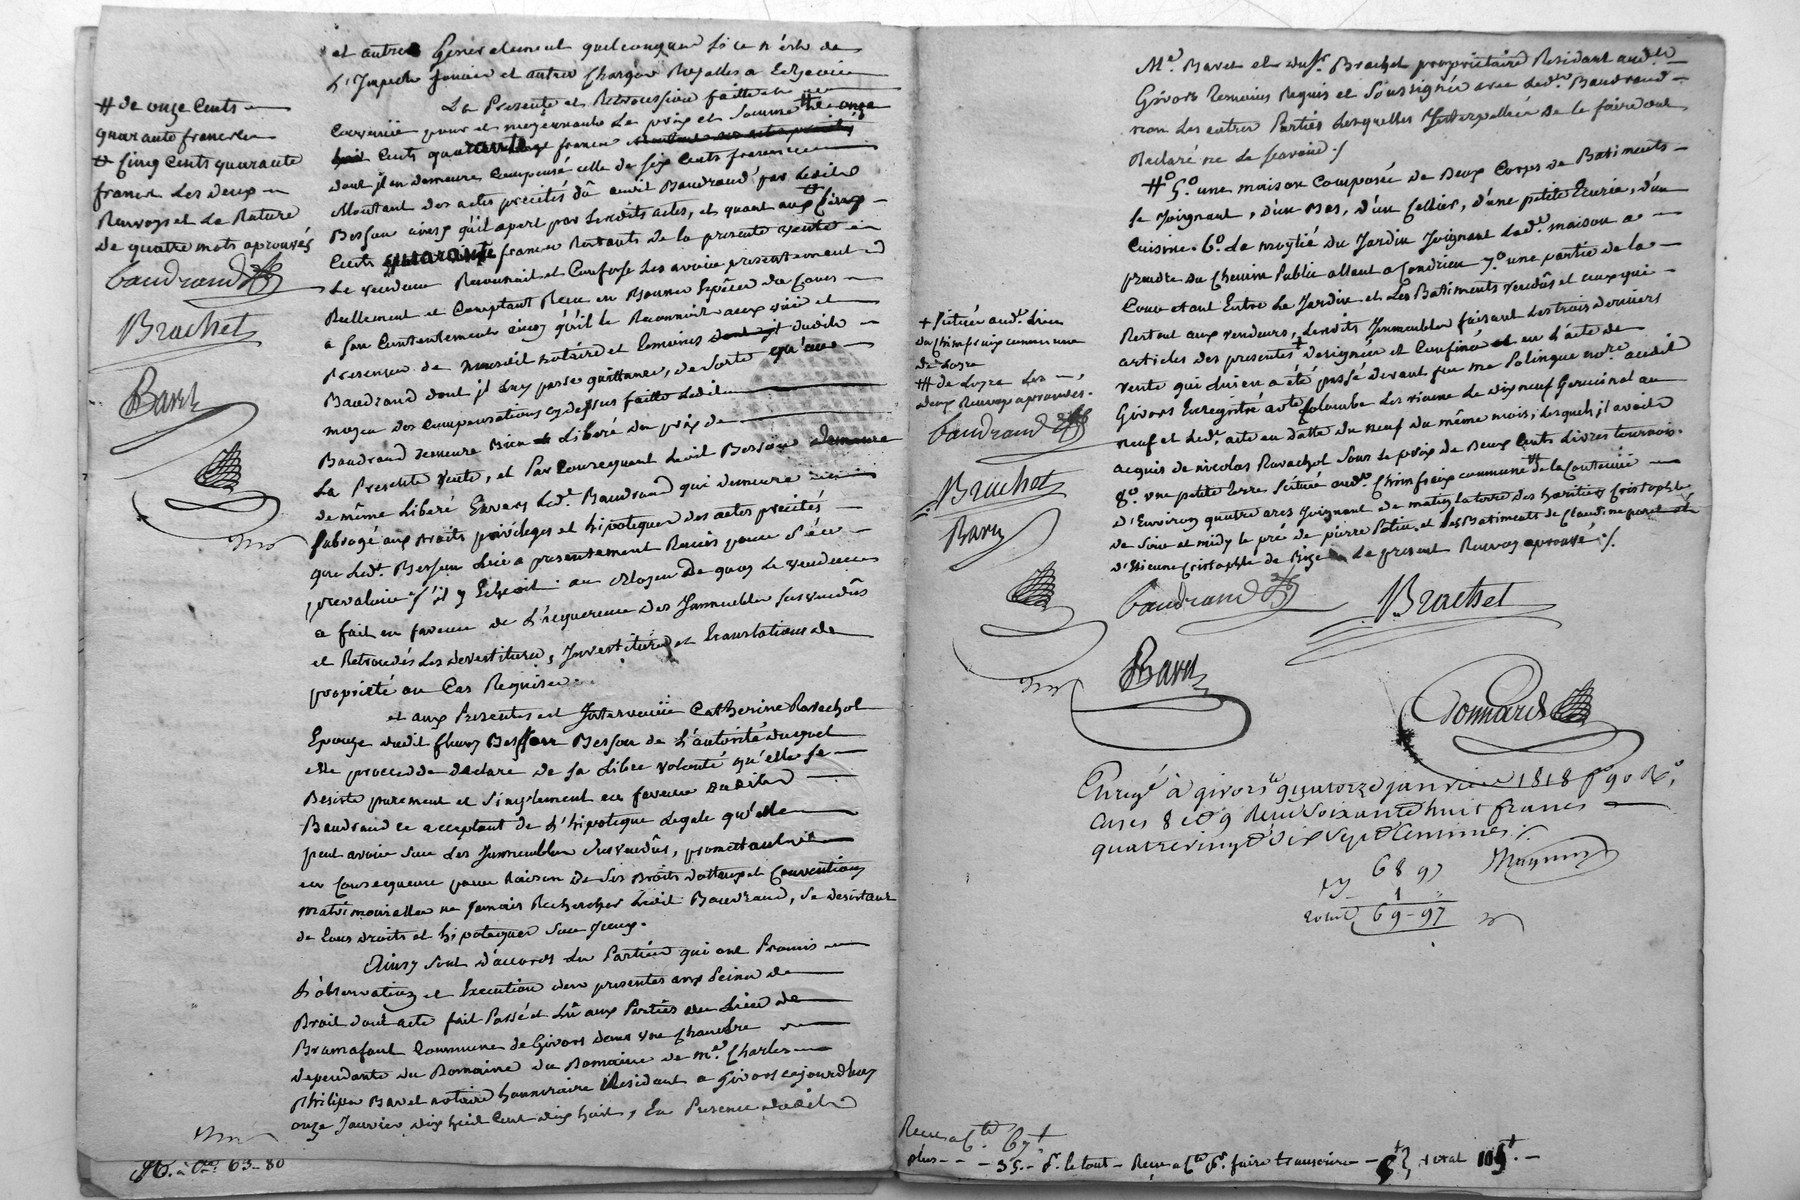 et autres Généralement quelconques si ce n'est de
L'Impôt foncier et autres Charges Reelles a Echeoir
La Presente et Retrocession faitte et
Convenüe pour et moyennant Le prix et Somme # de onze
Cents quarante francs
dont il en demeure Compensé celle de six Cents francs
Montant des actes precités dû audit Baudrand par Ledit
Besson ainsy qu'il apert par Lesdits actes, et quant aux # Cinq
Cents quarante francs Restants de la presente vente
Le vendeur Reconnait et Confesse Les avoir presentement
Reellement et Comptant Reçu en Bonnes Espèces du Cours
a son Contentement ainsy qu'il le Reconnoit aux vüe et
Presence de Nous dit Notaire et temoins dudit
Baudrand dont il Luy passe quittance, de sorte qu'au
moyen des Compensations cy dessus faittes Ledit
Baudrand demeure Bien Libéré du prix de
La Presente vente, et Par Consequent Ledit Besson demeure
de même Libéré Envers Ledt. Baudrand qui demeure
subrogé aux droits privileges et hipoteques des actes precités
que Ledt. Besson Lui a presentement Remis pour s'en
prevaloir s'il y Echeoit. au Moyen de quoy Le vendeur
a fait en faveur de L'acquereur des Immeubles susvendus
et Retrocedés Les devestitures, Investitures et translations de
propriété au Cas Requises.
et aux Presentes est Intervenüe Catherine Ravachol
Epouze dudit fleury Besson de L'autorité duquel
elle procedde declare de sa Libre volonté qu'elle se
Desiste purement et simplement en faveur dudit
Baudrand ce acceptant de L'hipoteque Legale qu'elle
peut avoir sur Les Immeubles susvendus, promettant
en Consequence pour Raison de ses Droits dottaux et Conventions
matrimonialles ne Jamais Rechercher Ledit Baudrand, se desistant
de tous droits et hipoteques sur Iceux.
Ainsy sont d'accords Les Parties qui ont Promis
L'observation et Execution des presentes aux Peines de
Droit dont acte fait Passé et Lû aux Parties au Lieu de
Bramafant Commune de Givors dans une chambre
dependante du Domaine de me. Charles
Philipe Baret notaire honnoraire Residant a Givors aujourd'huy
onze Janvier dix huit Cent dix huit, En Presence dudit
# de onze Cents
quarante francs
# Cinq Cents quarante
francs Les deux
Renvoys et La Rature
de quatre mots aprouvés
baudrand
Brachet
Baret
63-80
Me. Baret et de sr. Brachet proprietaire Residant audt.
Givors temoins Requis et soussignés avec Ledt. Baudrand
non Les autres Parties Lesquelles Interpellées de le faire ont
declaré ne Le scavoir ./
# 5o. une maison Composée de Deux Corps de Batiments
se Joignant, d'un Bas, d'un Cellier, d'une petite Ecurie, d'une
Cuisine. 6o. La moytié du Jardin Joignant Ladt. maison a
prendre du Chemin Public allant a Condrieu 7o. une partie de la
Cour etant Entre Le Jardin et Les Batiments vendûs et ceux qui
Restent aux vendeurs, Lesdits Immeubles faisant Les trois derniers
articles des presentes + designés et Confinés en L'acte de
vente qui Lui en a été passé devant feu me Polingue notre. audit
Givors Enregistré a Ste Colombe Les vienne Le dix neuf Germinal an
neuf et Ledt. acte en datte du neuf du même mois, Lesquels il avoit
acquis de nicolas Ravachol sous Le prix de Deux Cents Livres tournois.
8o. une petite terre scituée audt. Chimfraix commune # de la Contenüe
d'Environ quatre ares Joignant de matin La terre des heritiers Cristophle
de soir et midy le pré de pierre Poton et Les Batiments de Claudine
d'Etienne Cristophle de Bize Le present Renvoy aprouvé ./.
+ scitués audt. Lieu
du Chimfraix commune
de Loyre
# de Loyre Les
deux Renvoys aprouvés.
baudrand
Brachet
Baret
baudrand
Brachet
Baret
Bonnard
Enregé à givors le quatorze janvier 1818 fo 90 Ro.
cases 8 et 9 Reçu soixante huit francs
quatre vingt dix sept Centimes
68 97
1
69-97
plus - - - 35 - pr. le tout - Reçu pr. faire transcrire - total 105. -